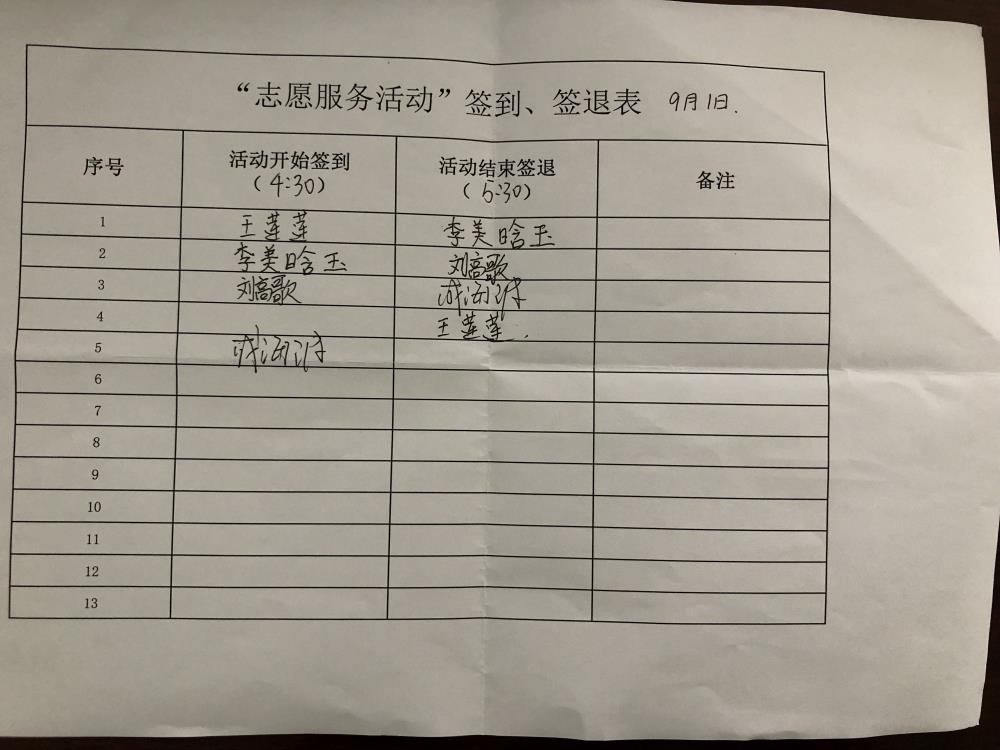 “志愿服务活动”签到、签退表 9月1日.
序号 活动开始签到 (4:30) 活动结束签退 (5:30) 备注
1 王莲莲 李美晗玉
2 李美晗玉 刘高歌
3 刘高歌
4 王莲莲.
5
6
7
8
9
10
11
12
13